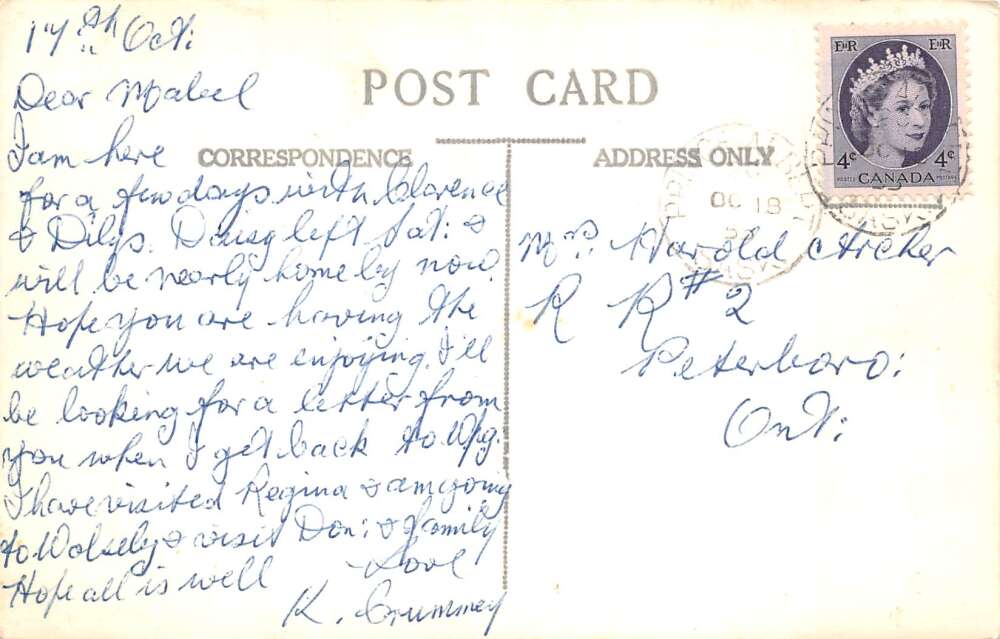 17th Oct:
Dear Mabel
I am here
for a few days with Clarence
& Dilys. Daisy left Sat: &
will be nearly home by now.
Hope you are having the
weather we are enjoying. I'll
be looking for a letter from
you when I get back to Wpg.
I have visited Regina & am going
to Wolsely & visit Don: & family
Hope all is well Love
K. Crummey
POST CARD
CORRESPONDENCE
ADDRESS ONLY
Mrs. Harold Archer
R R # 2
Peterboro:
Ont:
OC 18
SASK
EiiR EiiR
4¢ 4¢
POSTES POSTAGE
CANADA